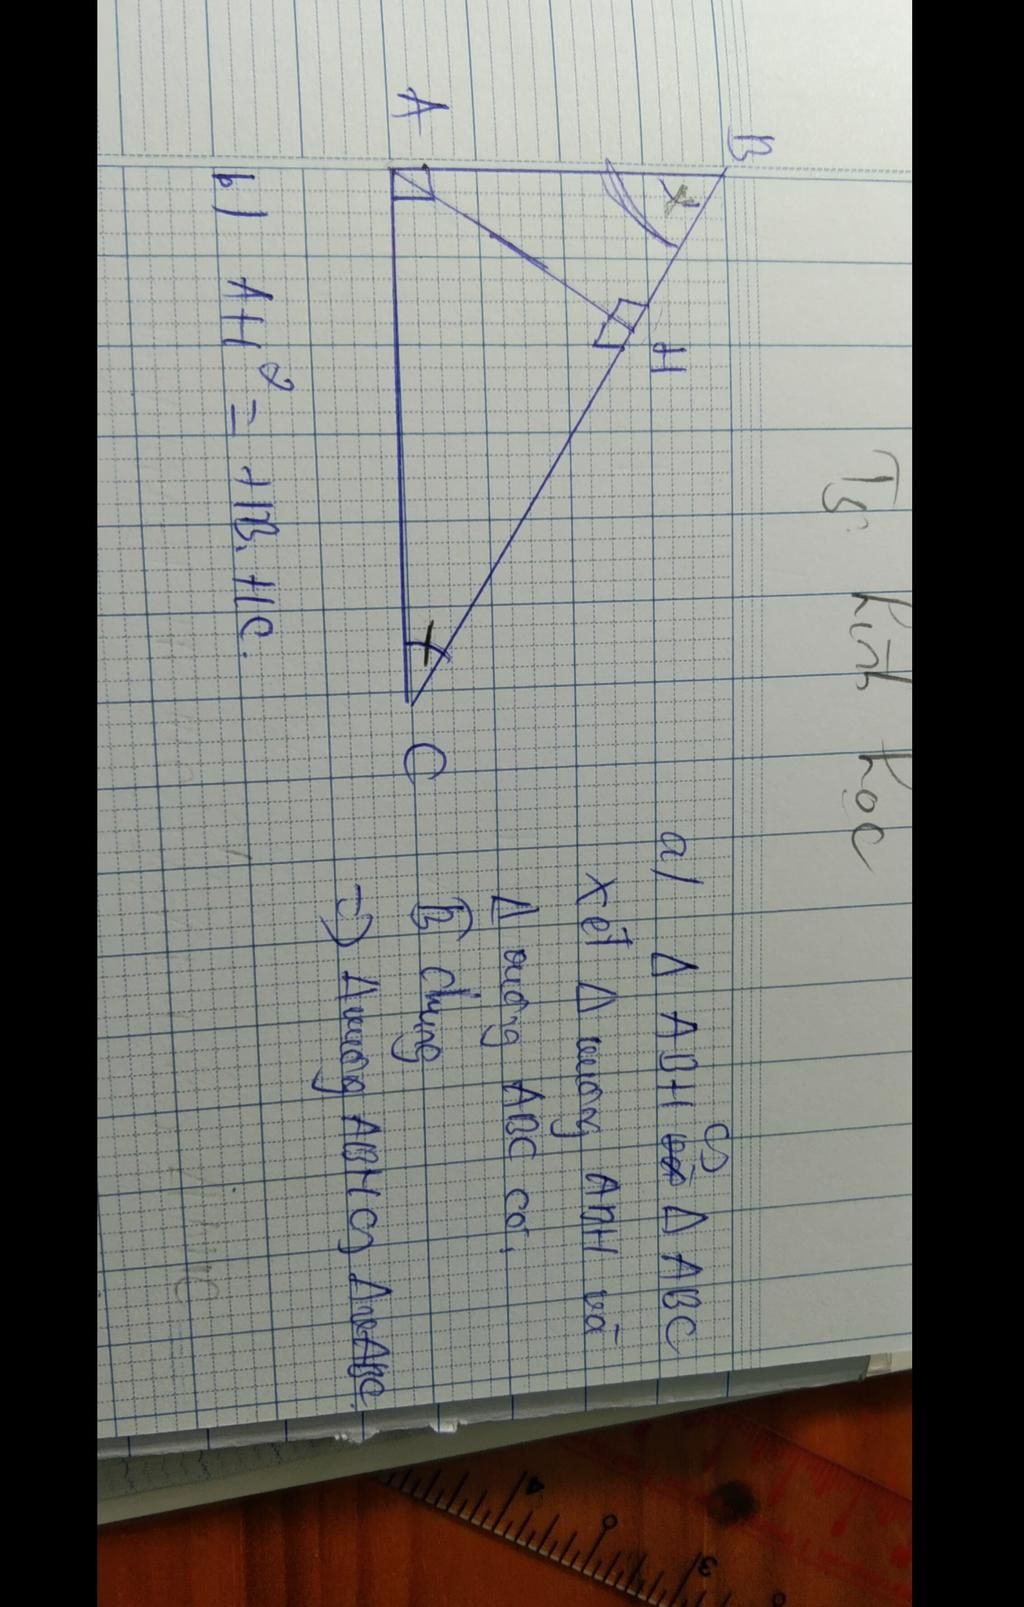 Tự hình học
B
x
H
A
C
a) Δ ABH ∽ Δ ABC
Xét Δ vuông ABH và
Δ vuông ABC có:
B̂ chung
=> Δ vuông ABH ∽ Δ v ABC.
b) AH² = HB.HC.
4
3